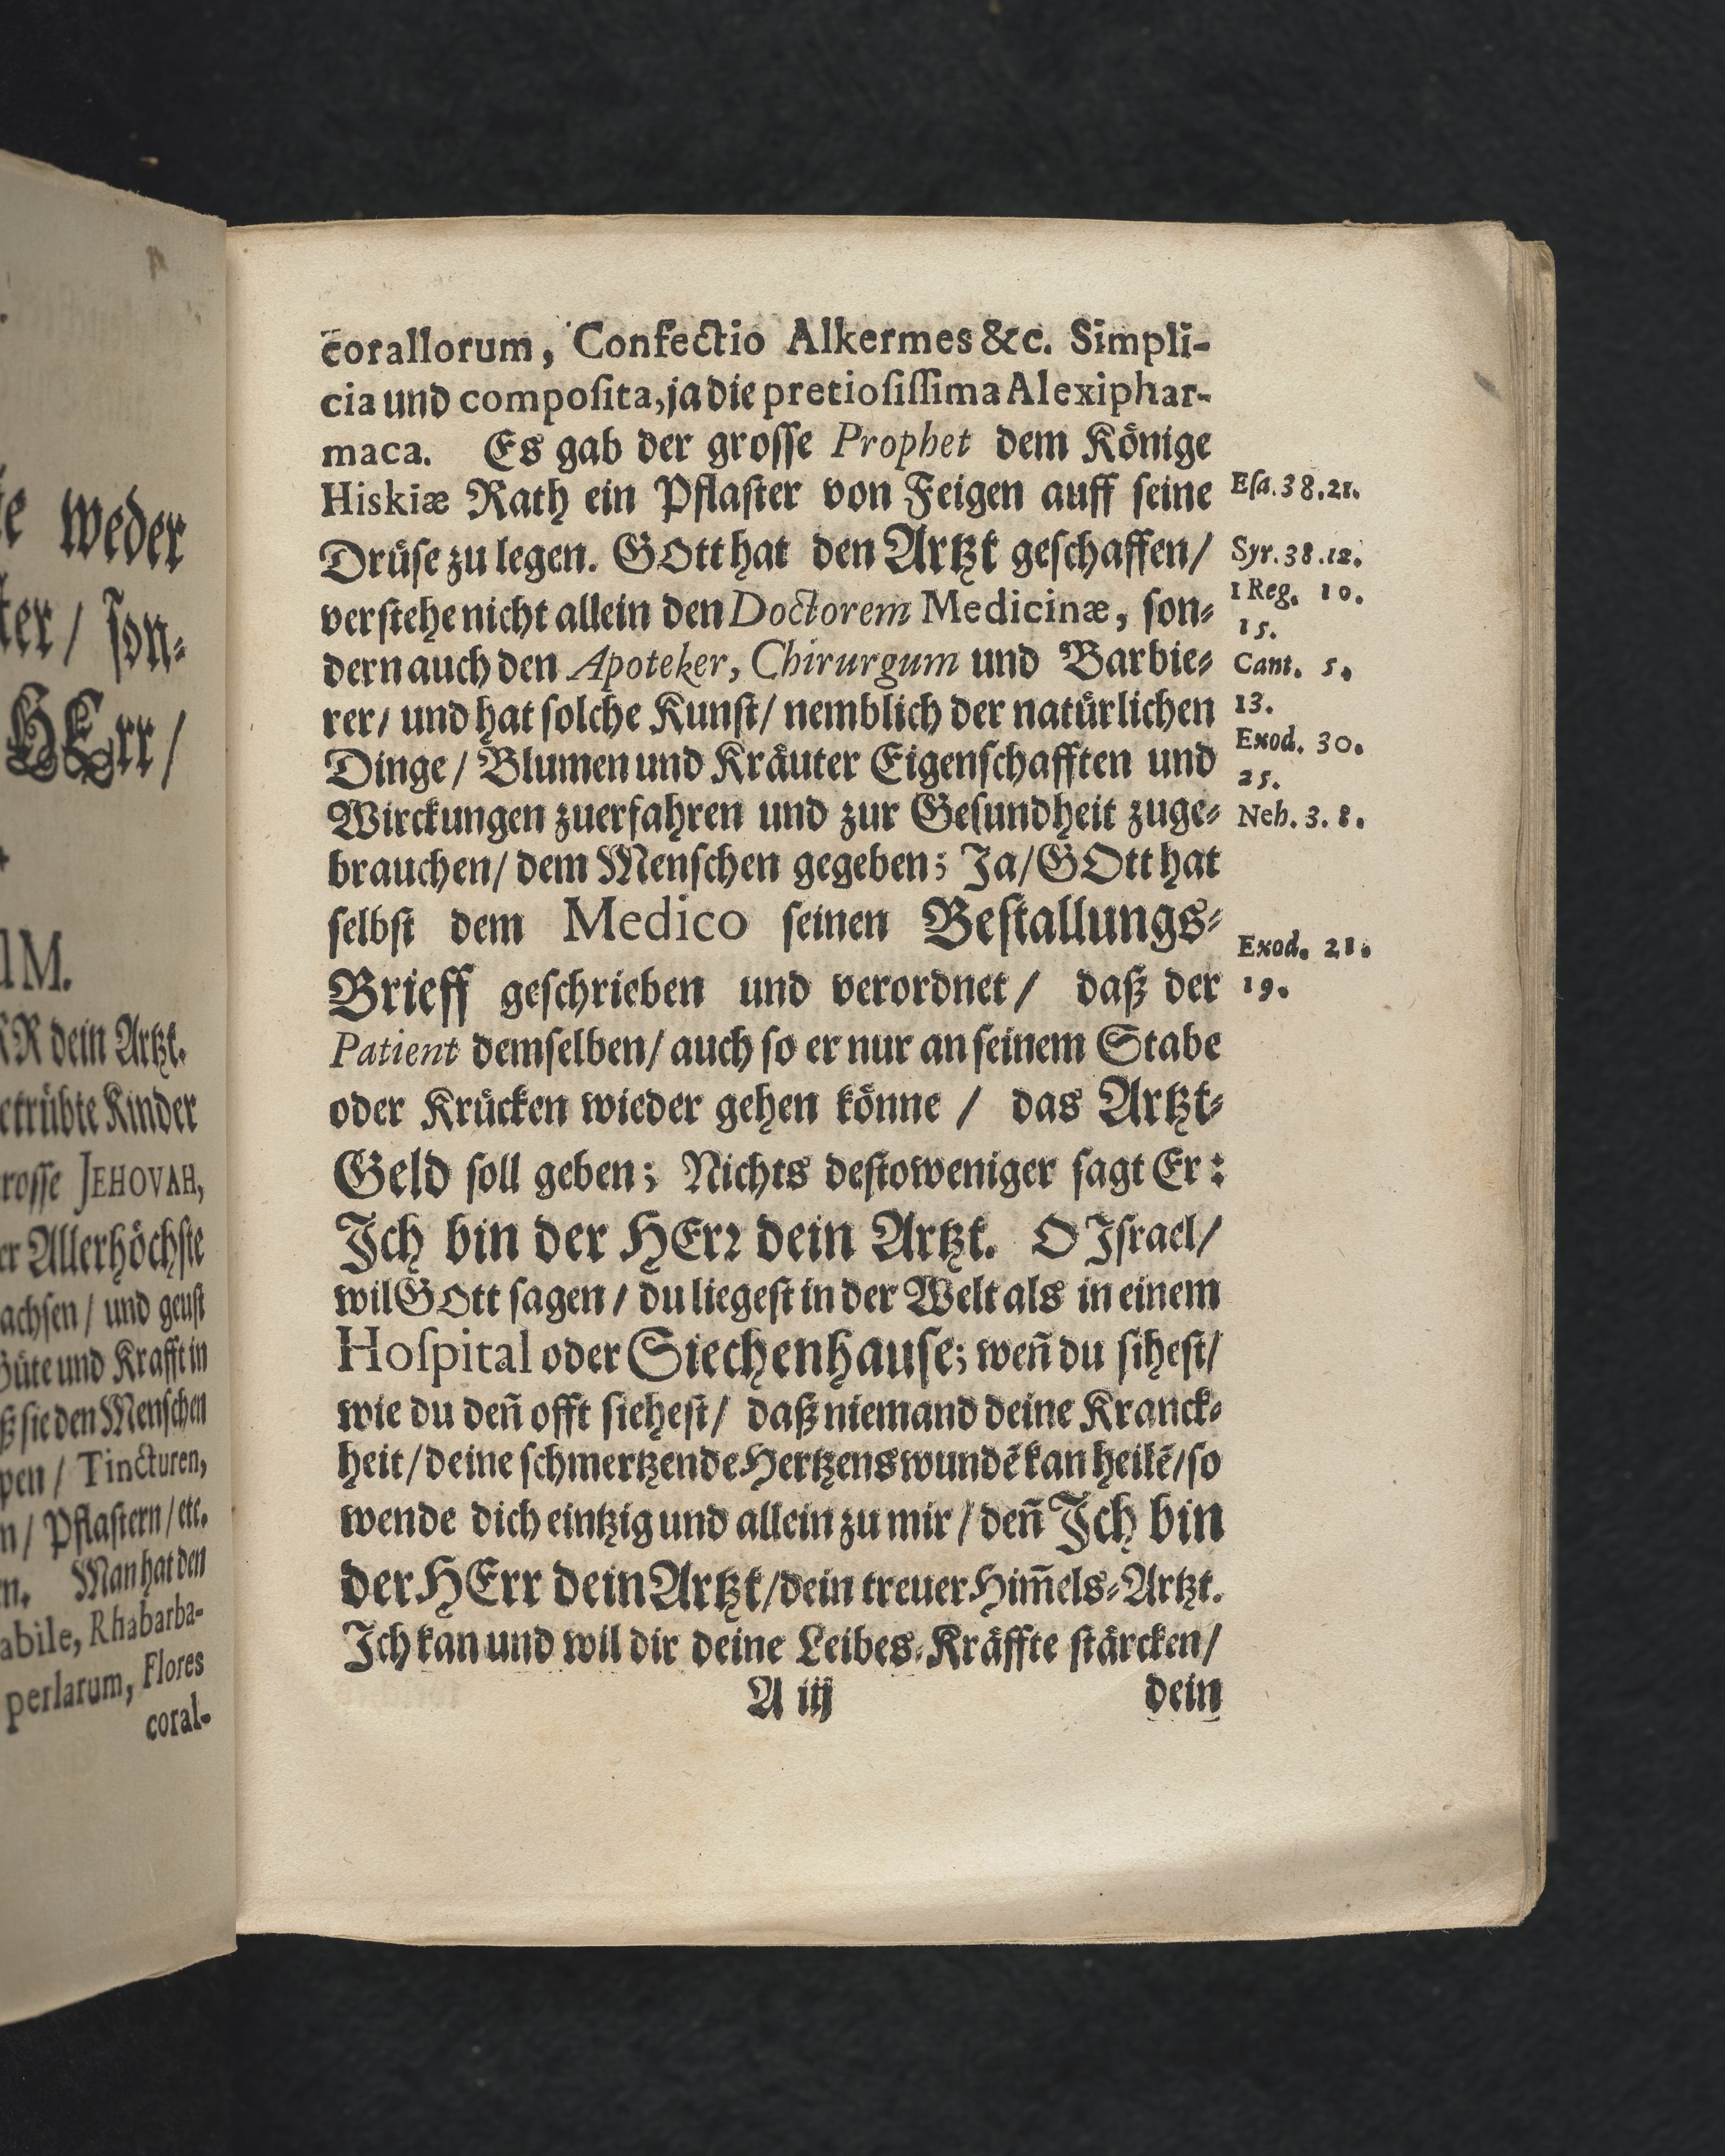 te weder
ter / son⸗
HErr /
UM.
RR dein Artzt.
etrübte Kinder
rosse JEHOVAH,
er Allerhöchste
achsen / und geust
Güte und Krafft in
ß sie den Menschen
pen / Tincturen,
n / Pflastern / etc.
en. Man hat den
abile, Rhabarba-
perlarum, Flores
coral-
corallorum, Confectio Alkermes &c. Simpli-
cia und composita, ja die pretiosissima Alexiphar-
maca. Es gab der grosse Prophet dem Könige
Hiskiæ Rath ein Pflaster von Feigen auff seine
Drüse zu legen. GOtt hat den Artzt geschaffen /
verstehe nicht allein den Doctorem Medicinæ, son⸗
dern auch den Apoteker, Chirurgum und Barbie⸗
rer / und hat solche Kunst / nemblich der natürlichen
Dinge / Blumen und Kräuter Eigenschafften und
Wirckungen zuerfahren und zur Gesundheit zuge⸗
brauchen / dem Menschen gegeben; Ja / GOtt hat
selbst dem Medico seinen Bestallungs⸗
Brieff geschrieben und verordnet / daß der
Patient demselben / auch so er nur an seinem Stabe
oder Krücken wieder gehen könne / das Artzt⸗
Geld soll geben; Nichts destoweniger sagt Er:
Ich bin der HErr dein Artzt. O Israel /
wil GOtt sagen / du liegest in der Welt als in einem
Hospital oder Siechenhause; weñ du sihest /
wie du deñ offt siehest / daß niemand deine Kranck⸗
heit / deine schmertzende Hertzenswundẽ kan heilẽ / so
wende dich eintzig und allein zu mir / deñ Ich bin
der HErr dein Artzt / dein treuer Him̃els⸗Artzt.
Ich kan und wil dir deine Leibes⸗Kräffte stärcken /
A iij dein
Esa. 38. 21.
Syr. 38. 12.
1 Reg. 10.
15.
Cant. 5.
13.
Exod. 30.
25.
Neh. 3. 8.
Exod. 21.
19.